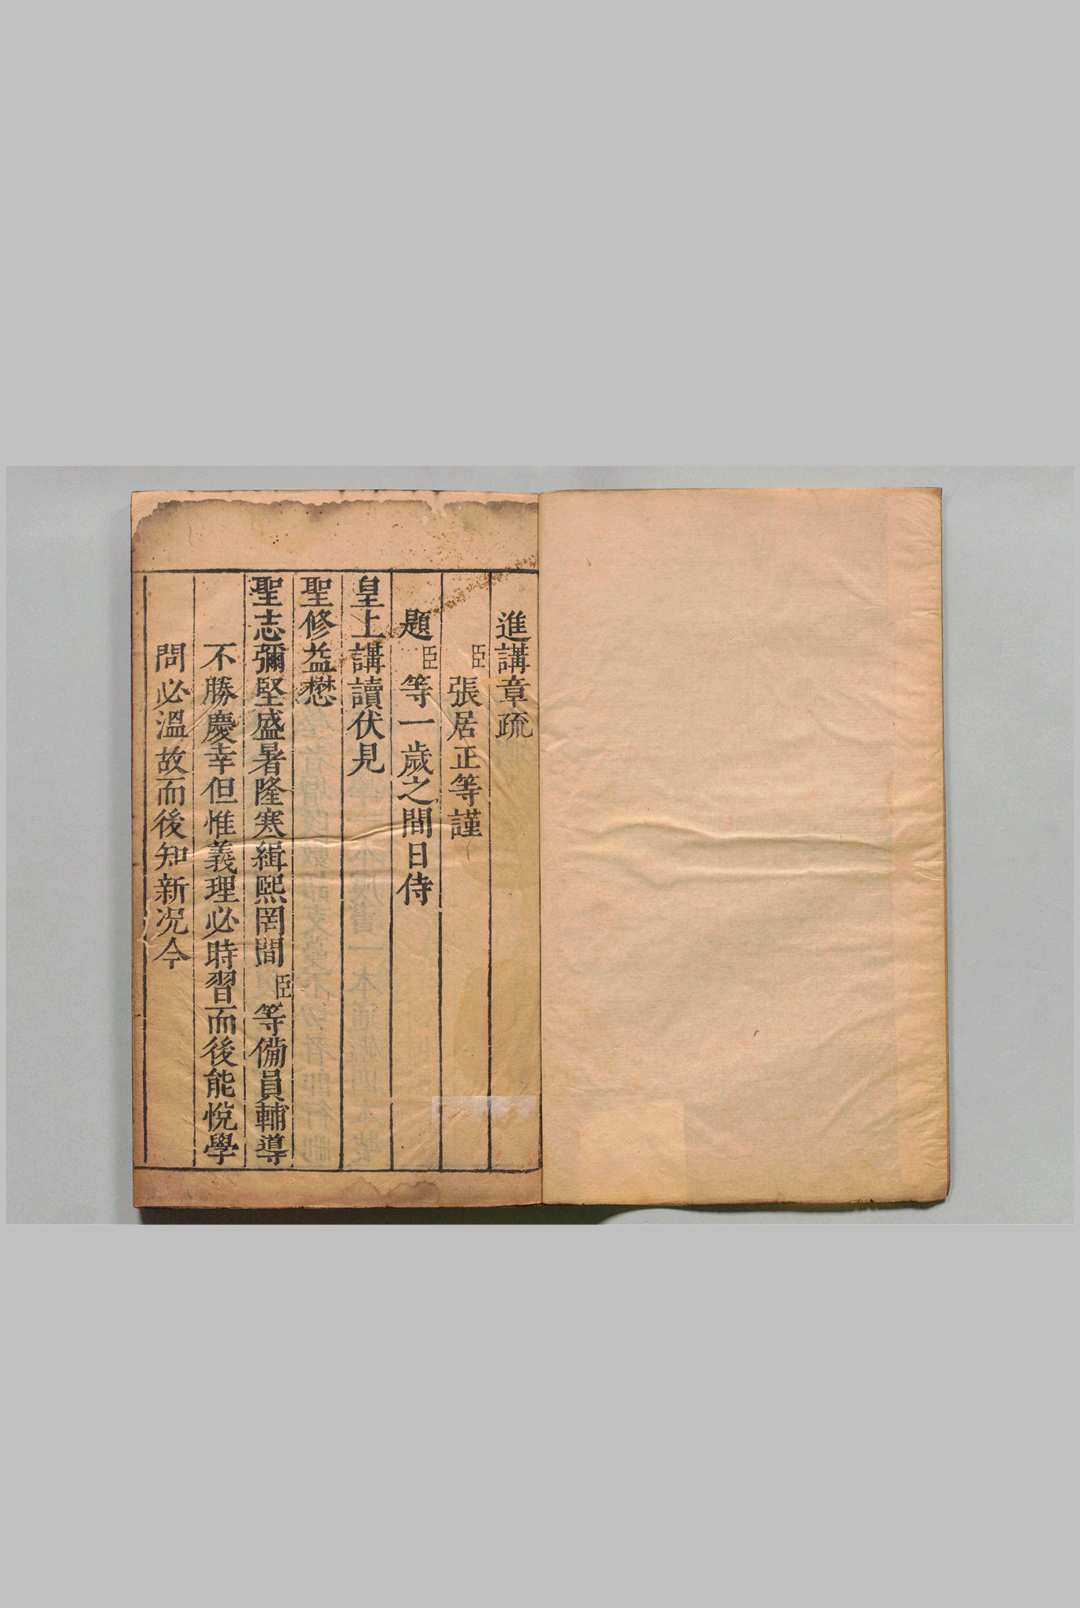 進講章疏
臣張居正等謹
題臣等一歲之間日侍
皇上講讀伏見
聖修益懋
聖志彌堅盛暑隆寒緝熙罔間臣等備員輔導
不勝慶幸但惟義理必時習而後能悅學
問必溫故而後知新況今